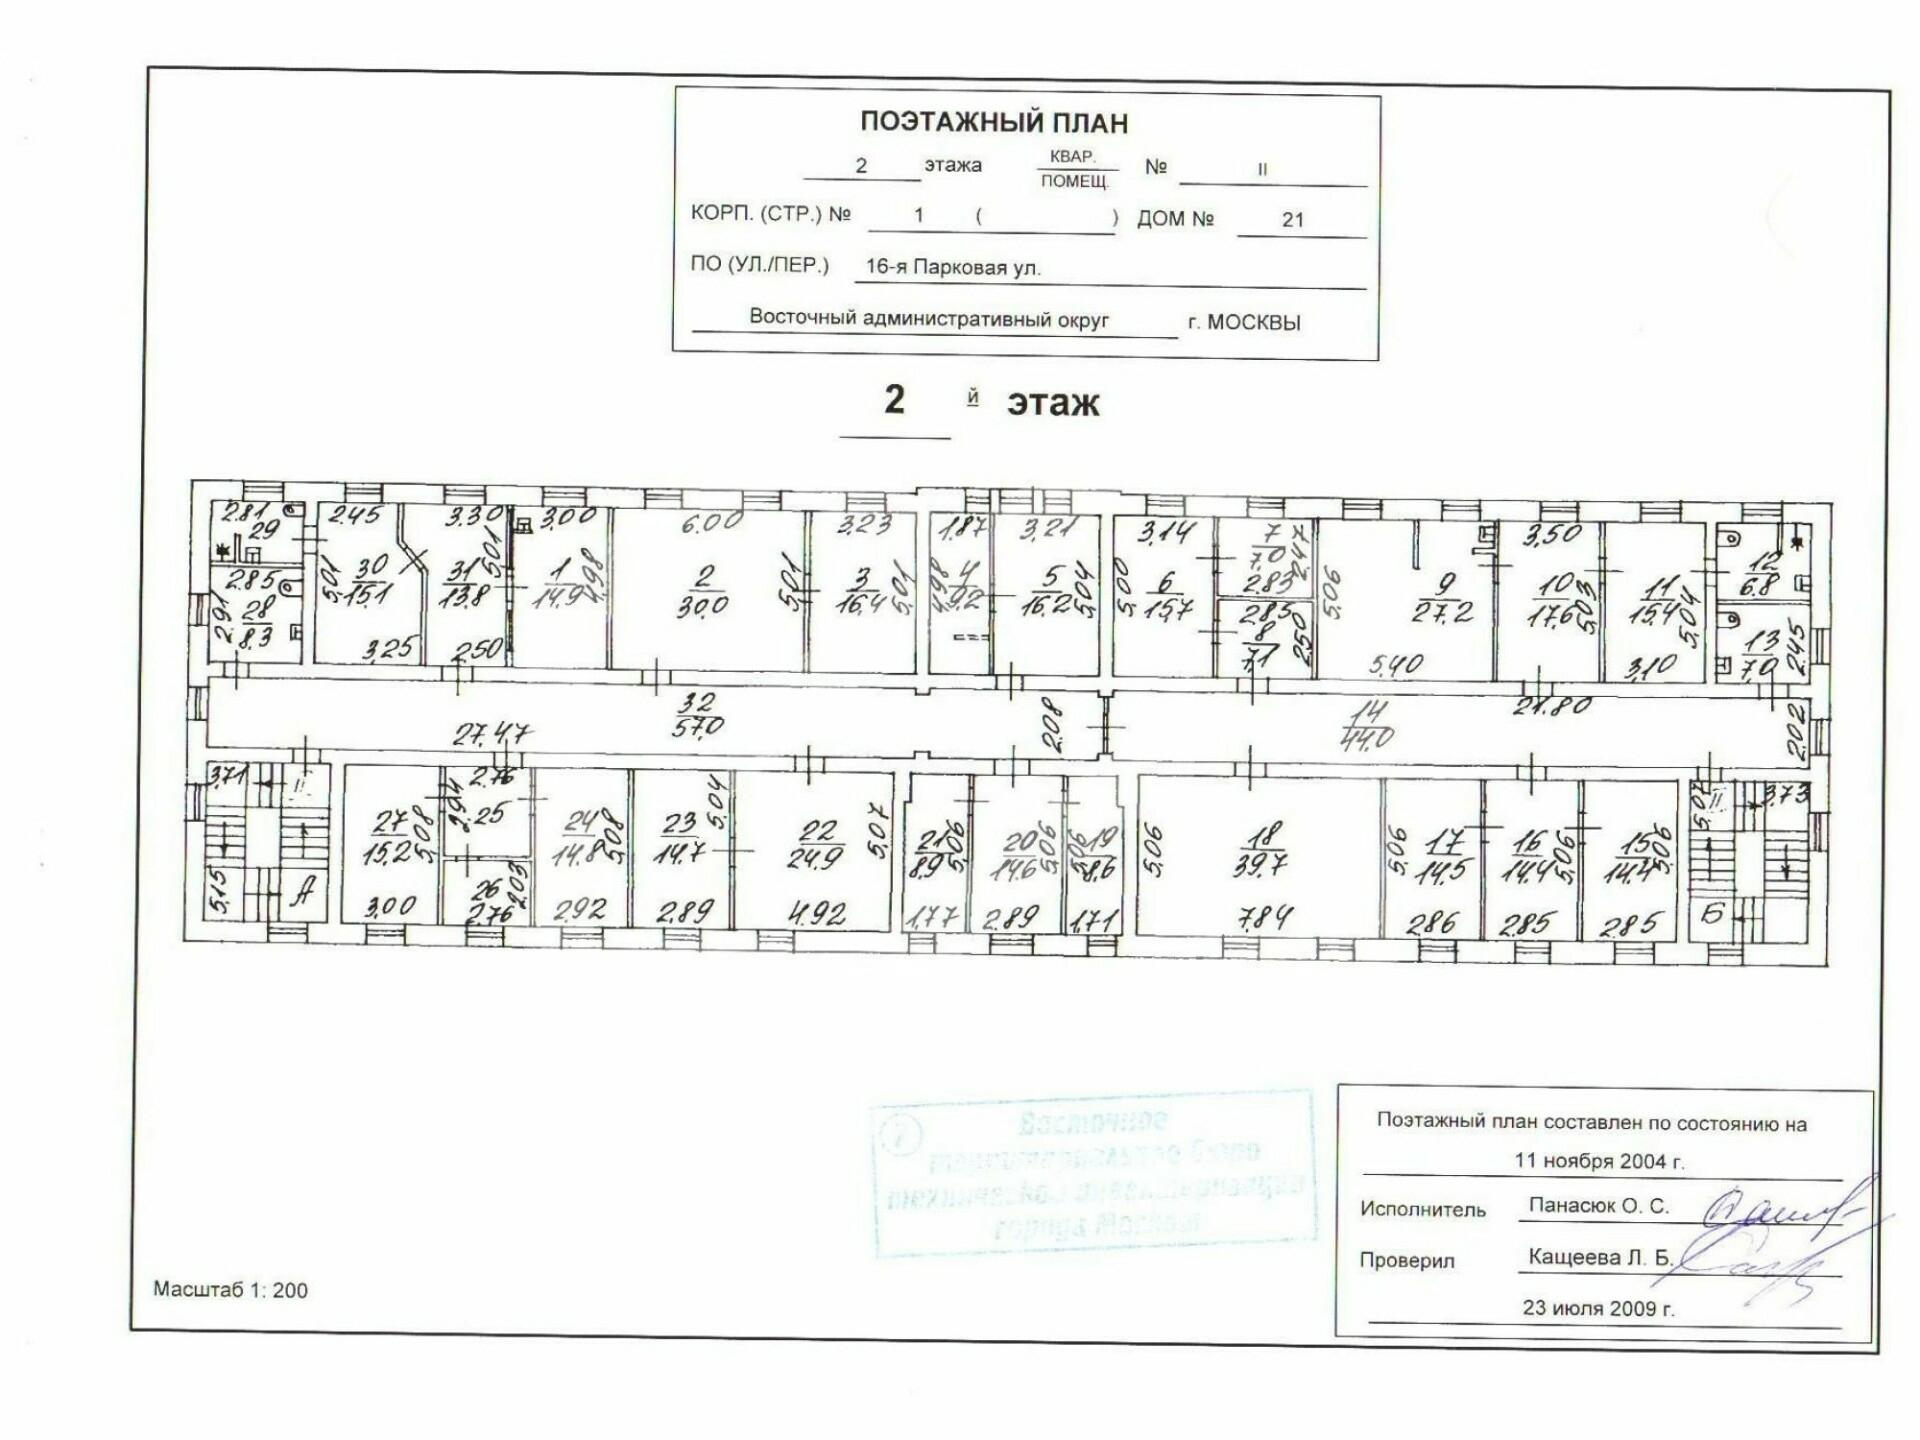 ПОЭТАЖНЫЙ ПЛАН
2 этажа КВАР. ПОМЕЩ. № II
КОРП. (СТР.) № 1 ( ) ДОМ № 21
ПО (УЛ./ПЕР.) 16-я Парковая ул.
Восточный административный округ г. МОСКВЫ
2 й этаж
2.81 2.45 3.30 3.00 6.00 3.23 1.87 3.21 3.14 7 3.50
29 7.0 2.47 12
5.01 5.01 4.98 5.01 5.01 4.98 5.04 5.00 2.83 5.06 5.03 5.04 6.8
2.85 30 31 1 2 3 4 5 6 2.85 9 10 11
2.91 28 15.1 13.8 14.9 30.0 16.4 9.2 16.2 15.7 8 2.50 27.2 17.6 15.4 13 2.45
8.3 7.1 7.0
3.25 2.50 5.40 3.10
32 14 21.80
27.47 57.0 2.08 44.0 2.02
3.71 II 2.76 II 3.73
2.94 25 5.04 5.07
27 5.08 24 5.08 23 22 5.07 21 5.06 20 5.06 5.06 19 5.06 18 5.06 17 16 5.06 15 5.06
15.2 14.8 14.7 24.9 8.9 14.6 8.6 39.7 14.5 14.4 14.4
5.15 А 26 2.03 Б
3.00 2.76 2.92 2.89 4.92 1.77 2.89 1.71 7.84 2.86 2.85 2.85
Восточное
территориальное бюро
технической инвентаризации
города Москвы
Поэтажный план составлен по состоянию на
11 ноября 2004 г.
Исполнитель Панасюк О. С.
Проверил Кащеева Л. Б.
23 июля 2009 г.
Масштаб 1: 200